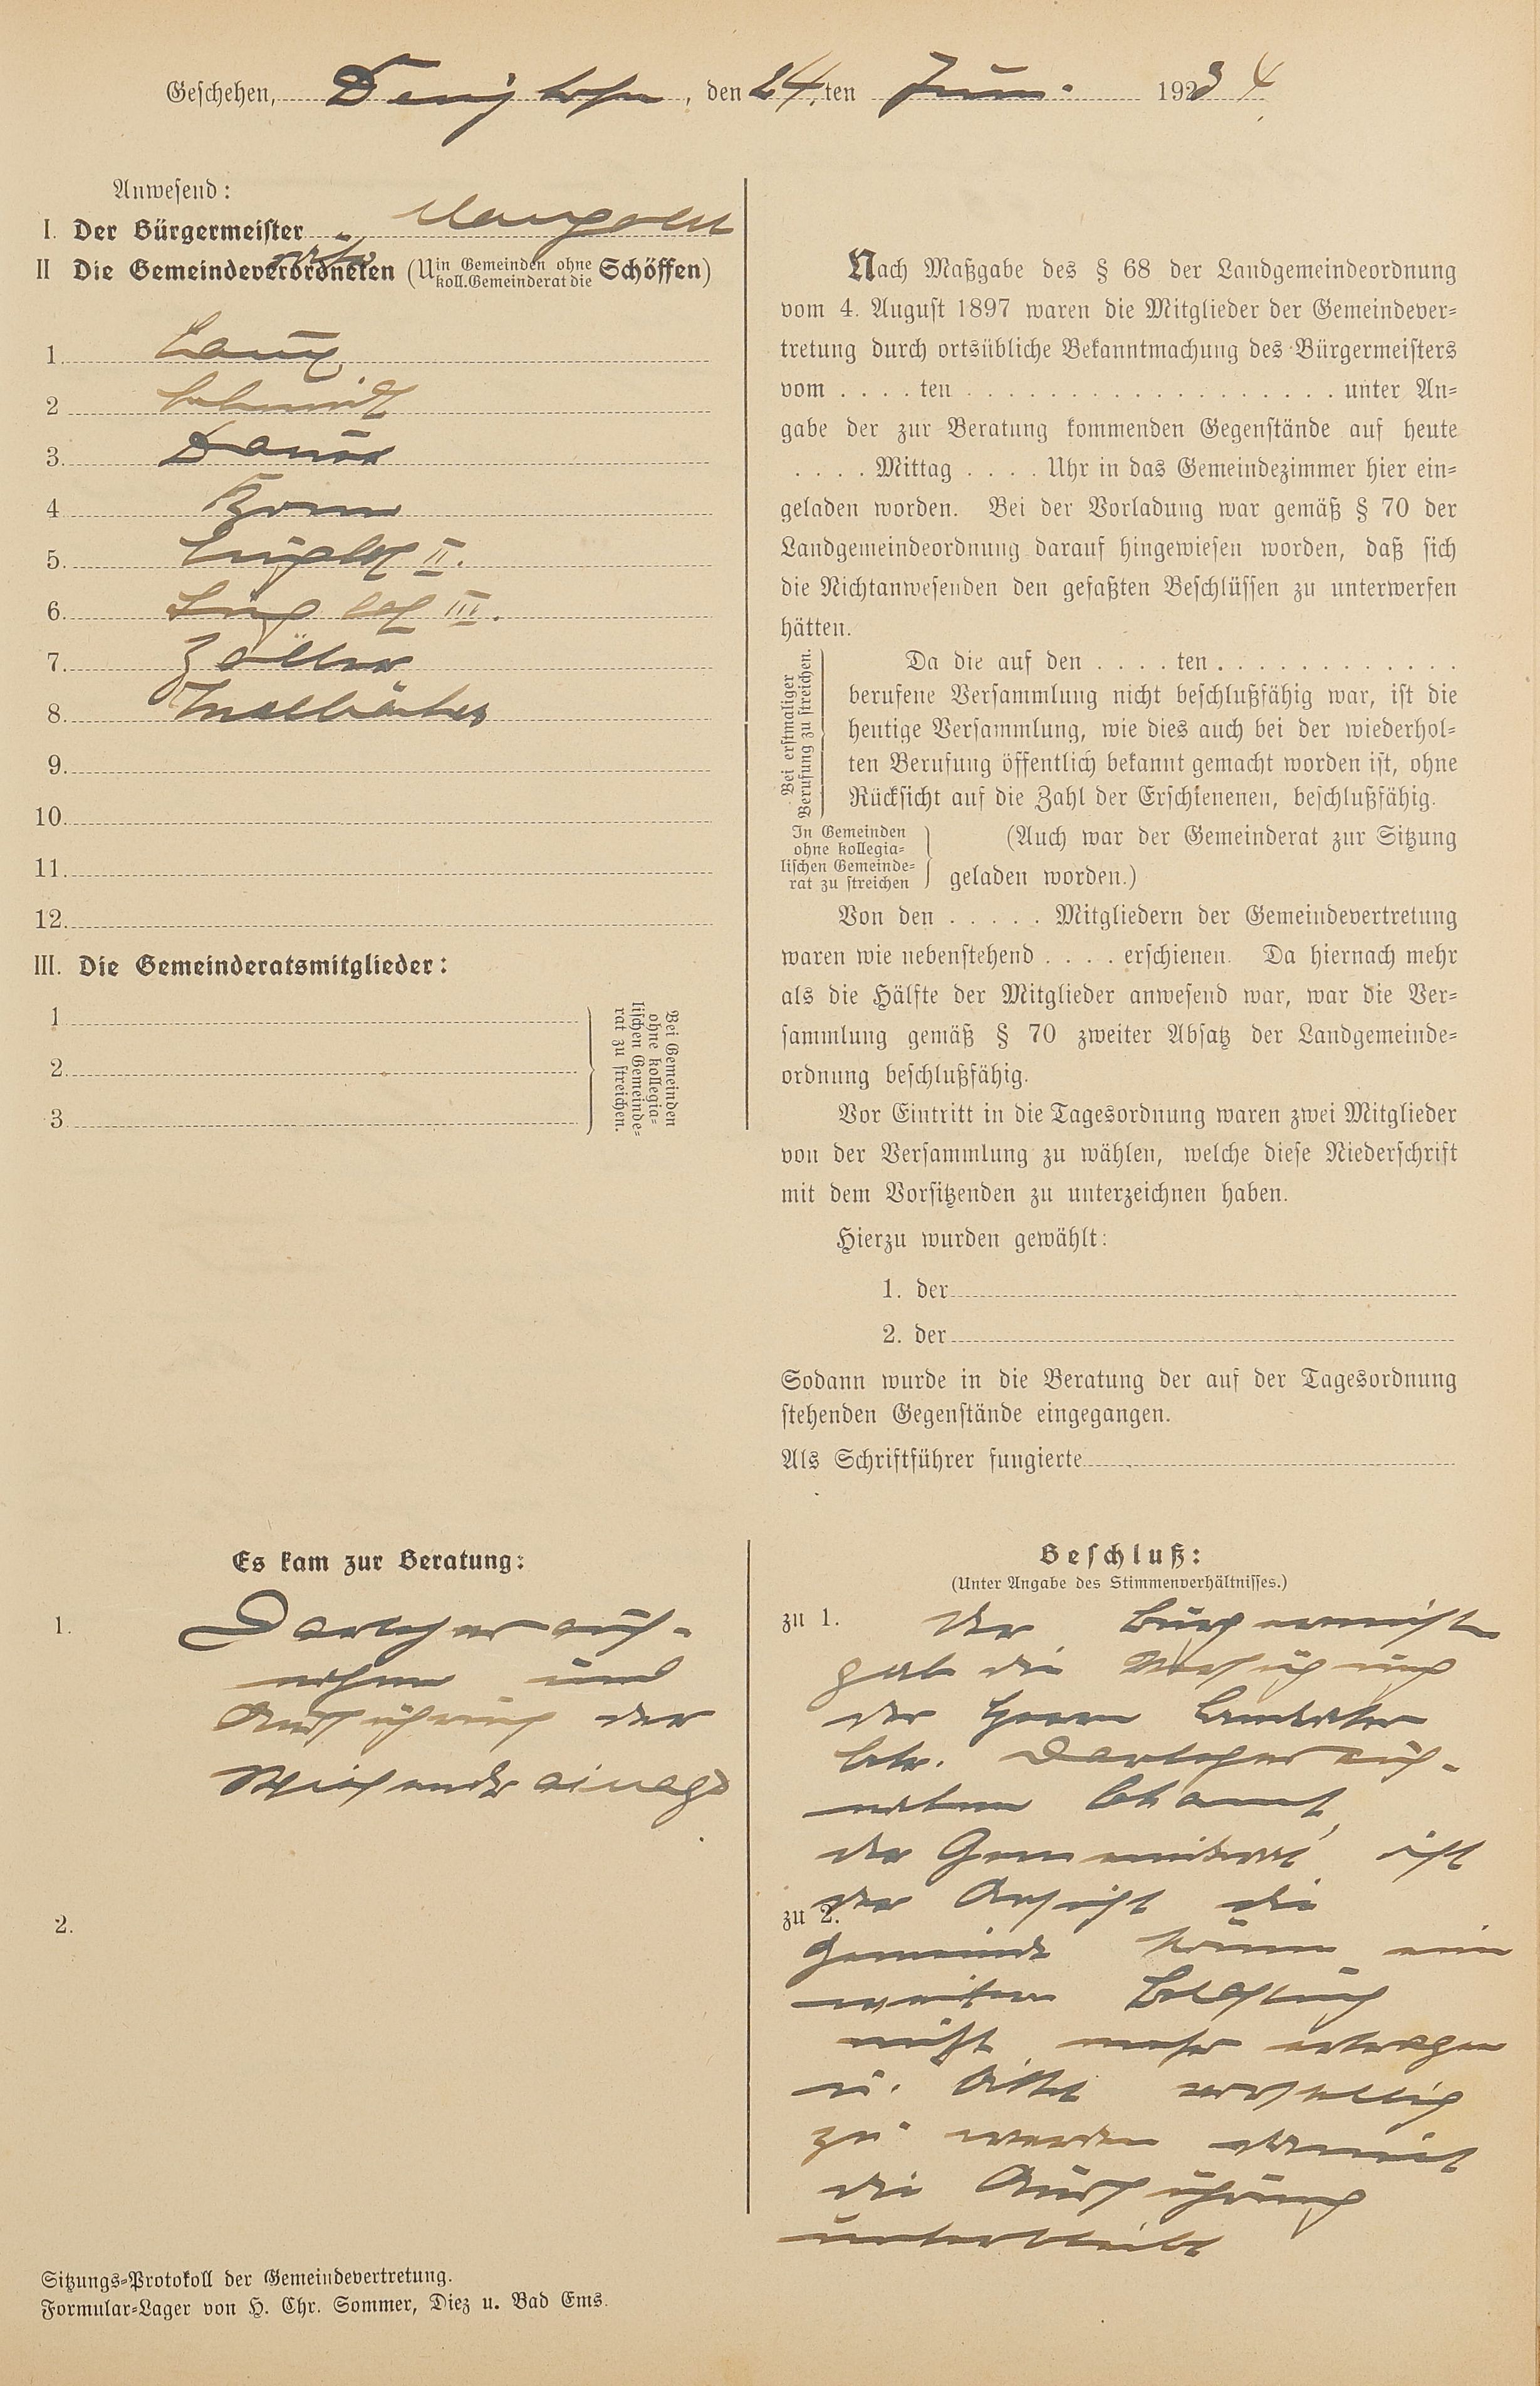 Geschehen, , den 24.ten Juni. 1923 4
Anwesend:
I. Der Bürgermeister Mangold
II Die Gemeindeverordneten (U in Gemeinden ohne koll. Gemeinderat die Schöffen)
1. Lang
2 Schmidt
3. Dauer
4 Korn
5. II.
6. III.
7. Zöller
8.
9.
10.
11.
12.
III. Die Gemeinderatsmitglieder:
1
2.
3.
Bei Gemeinden
ohne kollegia-
lischen Gemeinde-
rat zu streichen.
Nach Maßgabe des § 68 der Landgemeindeordnung
vom 4. August 1897 waren die Mitglieder der Gemeindever-
tretung durch ortsübliche Bekanntmachung des Bürgermeisters
vom . . . . ten . . . . . . . . . . . . . . . . . . unter An-
gabe der zur Beratung kommenden Gegenstände auf heute
. . . . Mittag . . . . Uhr in das Gemeindezimmer hier ein-
geladen worden. Bei der Vorladung war gemäß § 70 der
Landgemeindeordnung darauf hingewiesen worden, daß sich
die Nichtanwesenden den gefaßten Beschlüssen zu unterwerfen
hätten.
Bei erstmaliger
Berufung zu streichen.
Da die auf den . . . . ten . . . . . . . . . . . .
berufene Versammlung nicht beschlußfähig war, ist die
heutige Versammlung, wie dies auch bei der wiederhol-
ten Berufung öffentlich bekannt gemacht worden ist, ohne
Rücksicht auf die Zahl der Erschienenen, beschlußfähig.
In Gemeinden
ohne kollegia-
lischen Gemeinde-
rat zu streichen
(Auch war der Gemeinderat zur Sitzung
geladen worden.)
Von den . . . . . Mitgliedern der Gemeindevertretung
waren wie nebenstehend . . . . erschienen. Da hiernach mehr
als die Hälfte der Mitglieder anwesend war, war die Ver-
sammlung gemäß § 70 zweiter Absatz der Landgemeinde-
ordnung beschlußfähig.
Vor Eintritt in die Tagesordnung waren zwei Mitglieder
von der Versammlung zu wählen, welche diese Niederschrift
mit dem Vorsitzenden zu unterzeichnen haben.
Hierzu wurden gewählt:
1. der
2. der
Sodann wurde in die Beratung der auf der Tagesordnung
stehenden Gegenstände eingegangen.
Als Schriftführer fungierte
Es kam zur Beratung:
1. Darlehensauf-
nahme und
Ausführung der
Wiesendrainage
2.
Beschluß:
(Unter Angabe des Stimmenverhältnisses.)
zu 1. Der Bürgermeister
gab die Verfügung
des Herrn Landrates
betr. Darlehensauf-
nahme bekannt,
der Gemeinderat ist
zu 2. der Ansicht die
Gemeinde könne eine
weitere Belastung
nicht mehr ertragen
u. bittet vorstellig
zu werden damit
die Ausführung
unterbleibt
Sitzungs-Protokoll der Gemeindevertretung.
Formular-Lager von H. Chr. Sommer, Diez u. Bad Ems.